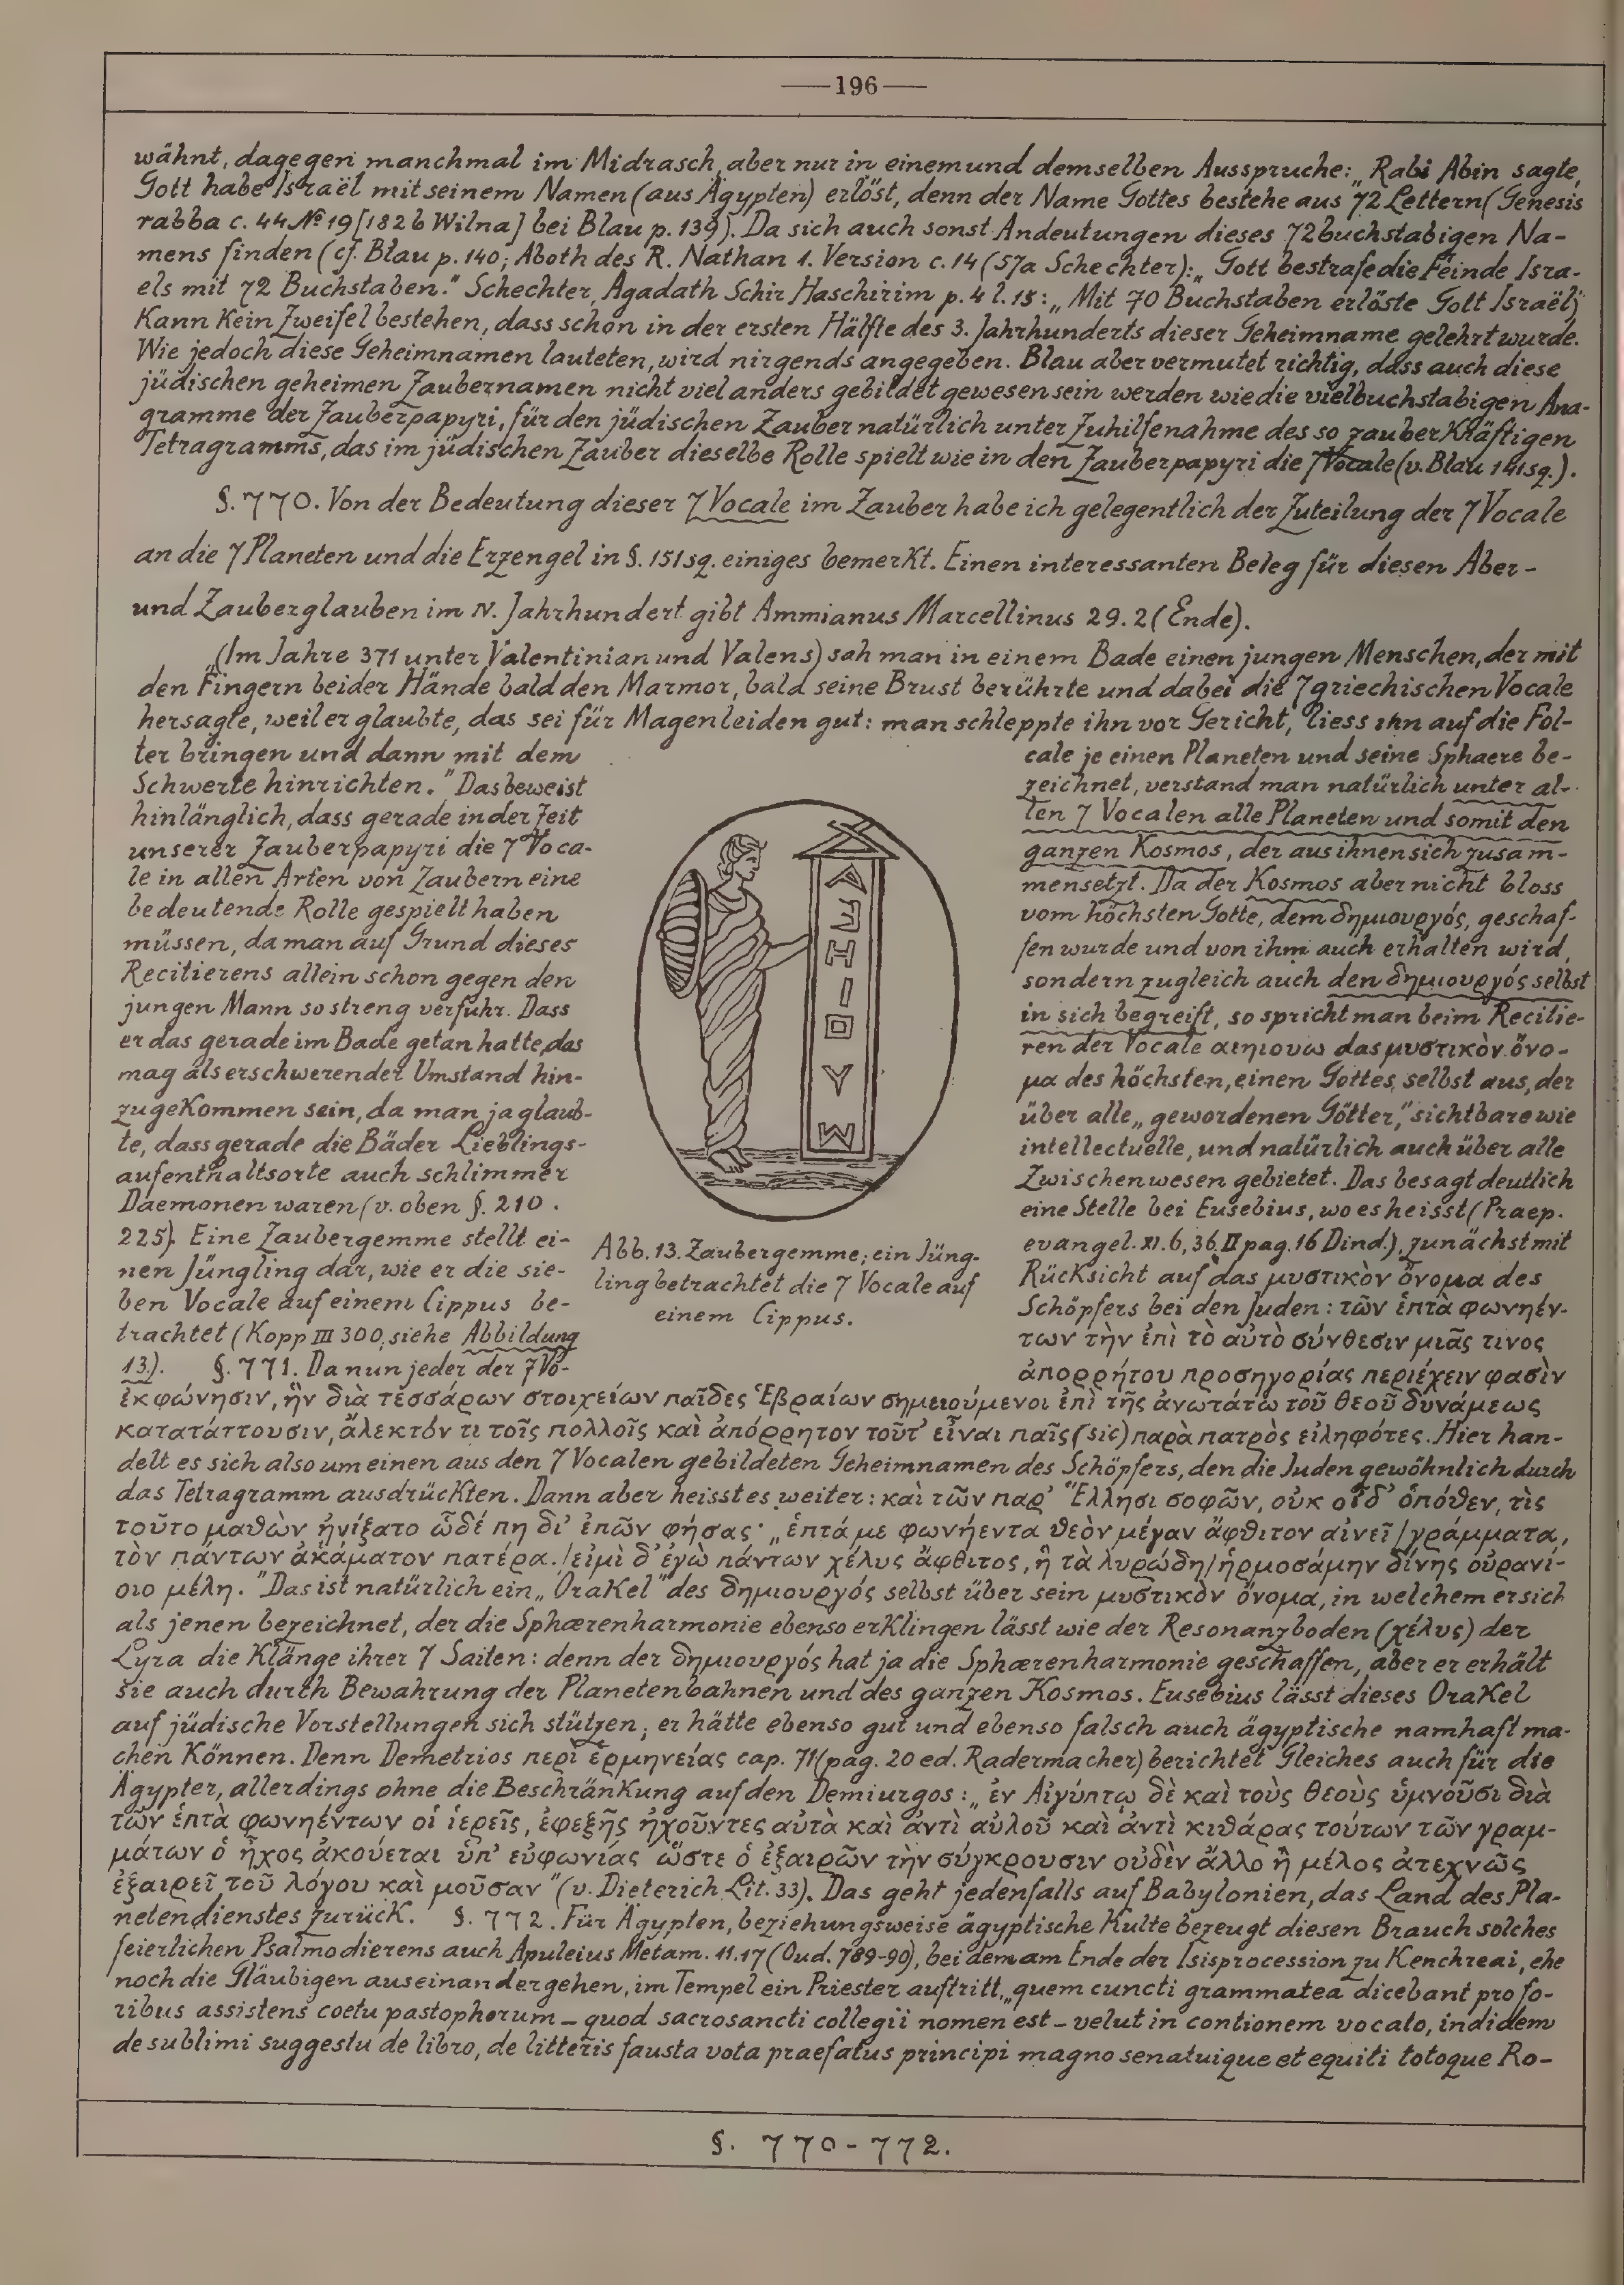 —196—
wähnt, dagegen manchmal im Midrasch, aber nur in einem und demselben Ausspruche: „Rabi Abin sagte,
Gott habe Israël mit seinem Namen (aus Ägypten) erlöst, denn der Name Gottes bestehe aus 72 Lettern (Genesis
rabba c. 44 No 19 [182b Wilna] bei Blau p. 139). Da sich auch sonst Andeutungen dieses 72buchstabigen Na-
mens finden (cf. Blau p. 140; Aboth des R. Nathan 1. Version c. 14 (57a Schechter): „Gott bestrafe die Feinde Isra-
els mit 72 Buchstaben." Schechter, Agadath Schir Haschirim p. 4 l. 15: „Mit 70 Buchstaben erlöste Gott Israël)"
kann kein Zweifel bestehen, dass schon in der ersten Hälfte des 3. Jahrhunderts dieser Geheimname gelehrt wurde.
Wie jedoch diese Geheimnamen lauteten, wird nirgends angegeben. Blau aber vermutet richtig, dass auch diese
jüdischen geheimen Zaubernamen nicht viel anders gebildet gewesen sein werden wie die vielbuchstabigen Ana-
gramme der Zauberpapyri, für den jüdischen Zauber natürlich unter Zuhilfenahme des so zauberkräftigen
Tetragramms, das im jüdischen Zauber dieselbe Rolle spielt wie in den Zauberpapyri die 7 Vocale (v. Blau 141 sq.).
§. 770. Von der Bedeutung dieser 7 Vocale im Zauber habe ich gelegentlich der Zuteilung der 7 Vocale
an die 7 Planeten und die Erzengel in §. 151 sq. einiges bemerkt. Einen interessanten Beleg für diesen Aber-
und Zauberglauben im IV. Jahrhundert gibt Ammianus Marcellinus 29. 2 (Ende).
„(Im Jahre 371 unter Valentinian und Valens) sah man in einem Bade einen jungen Menschen, der mit
den Fingern beider Hände bald den Marmor, bald seine Brust berührte und dabei die 7 griechischen Vocale
hersagte, weil er glaubte, das sei für Magenleiden gut: man schleppte ihn vor Gericht, liess ihn auf die Fol-
ter bringen und dann mit dem
Schwerte hinrichten." Das beweist
hinlänglich, dass gerade in der Zeit
unserer Zauberpapyri die 7 Voca-
le in allen Arten von Zaubern eine
bedeutende Rolle gespielt haben
müssen, da man auf Grund dieses
Recitierens allein schon gegen den
jungen Mann so streng verfuhr. Dass
er das gerade im Bade getan hatte, das
mag als erschwerender Umstand hin-
zugekommen sein, da man ja glaub-
te, dass gerade die Bäder Lieblings-
aufenthaltsorte auch schlimmer
Daemonen waren (v. oben §. 210.
225). Eine Zaubergemme stellt ei-
nen Jüngling dar, wie er die sie-
ben Vocale auf einem Cippus be-
trachtet (Kopp III 300, siehe Abbildung
13). §. 771. Da nun jeder der 7 Vo-
Α
Ε
Η
Ι
Ο
Υ
Ω
Abb. 13. Zaubergemme; ein Jüng-
ling betrachtet die 7 Vocale auf
einem Cippus.
cale je einen Planeten und seine Sphaere be-
zeichnet, verstand man natürlich unter al-
len 7 Vocalen alle Planeten und somit den
ganzen Kosmos, der aus ihnen sich zusam-
mensetzt. Da der Kosmos aber nicht bloss
vom höchsten Gotte, dem δημιουργός, geschaf-
fen wurde und von ihm auch erhalten wird,
sondern zugleich auch den δημιουργός selbst
in sich begreift, so spricht man beim Recitie-
ren der Vocale αεηιουω das μυστικὸν ὄνο-
μα des höchsten, einen Gottes selbst aus, der
über alle „gewordenen Götter," sichtbare wie
intellectuelle, und natürlich auch über alle
Zwischenwesen gebietet. Das besagt deutlich
eine Stelle bei Eusebius, wo es heisst (Praep.
evangel. XI. 6, 36 II pag. 16 Dind.), zunächst mit
Rücksicht auf das μυστικὸν ὄνομα des
Schöpfers bei den Juden: τῶν ἑπτὰ φωνηέν-
των τὴν ἐπὶ τὸ αὐτὸ σύνθεσιν μιᾶς τινος
ἀπορρήτου προσηγορίας περιέχειν φασὶν
ἐκφώνησιν, ἣν διὰ τεσσάρων στοιχείων παῖδες Ἑβραίων σημειούμενοι ἐπὶ τῆς ἀνωτάτω τοῦ θεοῦ δυνάμεως
κατατάττουσιν, ἄλεκτόν τι τοῖς πολλοῖς καὶ ἀπόρρητον τοῦτ' εἶναι παῖς (sic) παρὰ πατρὸς εἰληφότες. Hier han-
delt es sich also um einen aus den 7 Vocalen gebildeten Geheimnamen des Schöpfers, den die Juden gewöhnlich durch
das Tetragramm ausdrückten. Dann aber heisst es weiter: καὶ τῶν παρ' Ἕλλησι σοφῶν, οὐκ οἶδ' ὁπόθεν, τὶς
τοῦτο μαθὼν ἠνίξατο ὧδέ πη δι' ἐπῶν φήσας· „ἑπτά με φωνήεντα θεὸν μέγαν ἄφθιτον αἰνεῖ / γράμματα,
τὸν πάντων ἀκάματον πατέρα. / εἰμὶ δ' ἐγὼ πάντων χέλυς ἄφθιτος, ἣ τὰ λυρώδη / ἡρμοσάμην δίνης οὐρανί-
οιο μέλη." Das ist natürlich ein „Orakel" des δημιουργός selbst über sein μυστικὸν ὄνομα, in welchem er sich
als jenen bezeichnet, der die Sphærenharmonie ebenso erklingen lässt wie der Resonanzboden (χέλυς) der
Lyra die Klänge ihrer 7 Saiten: denn der δημιουργός hat ja die Sphærenharmonie geschaffen, aber er erhält
sie auch durch Bewahrung der Planetenbahnen und des ganzen Kosmos. Eusebius lässt dieses Orakel
auf jüdische Vorstellungen sich stützen; er hätte ebenso gut und ebenso falsch auch ägyptische namhaft ma-
chen können. Denn Demetrios περὶ ἑρμηνείας cap. 71 (pag. 20 ed. Radermacher) berichtet Gleiches auch für die
Ägypter, allerdings ohne die Beschränkung auf den Demiurgos: „ἐν Αἰγύπτῳ δὲ καὶ τοὺς θεοὺς ὑμνοῦσι διὰ
τῶν ἑπτὰ φωνηέντων οἱ ἱερεῖς, ἐφεξῆς ἠχοῦντες αὐτὰ καὶ ἀντὶ αὐλοῦ καὶ ἀντὶ κιθάρας τούτων τῶν γραμ-
μάτων ὁ ἦχος ἀκούεται ὑπ' εὐφωνίας ὥστε ὁ ἐξαιρῶν τὴν σύγκρουσιν οὐδὲν ἄλλο ἢ μέλος ἀτεχνῶς
ἐξαιρεῖ τοῦ λόγου καὶ μοῦσαν" (v. Dieterich Lit. 33). Das geht jedenfalls auf Babylonien, das Land des Pla-
netendienstes zurück. §. 772. Für Ägypten, beziehungsweise ägyptische Kulte bezeugt diesen Brauch solches
feierlichen Psalmodierens auch Apuleius Metam. 11. 17 (Oud. 789-90), bei dem am Ende der Isisprocession zu Kenchreai, ehe
noch die Gläubigen auseinandergehen, im Tempel ein Priester auftritt, „quem cuncti grammatea dicebant pro fo-
ribus assistens coetu pastophorum – quod sacrosancti collegii nomen est – velut in contionem vocato, indidem
de sublimi suggestu de libro, de litteris fausta vota praefatus principi magno senatuique et equiti totoque Ro-
§. 770-772.